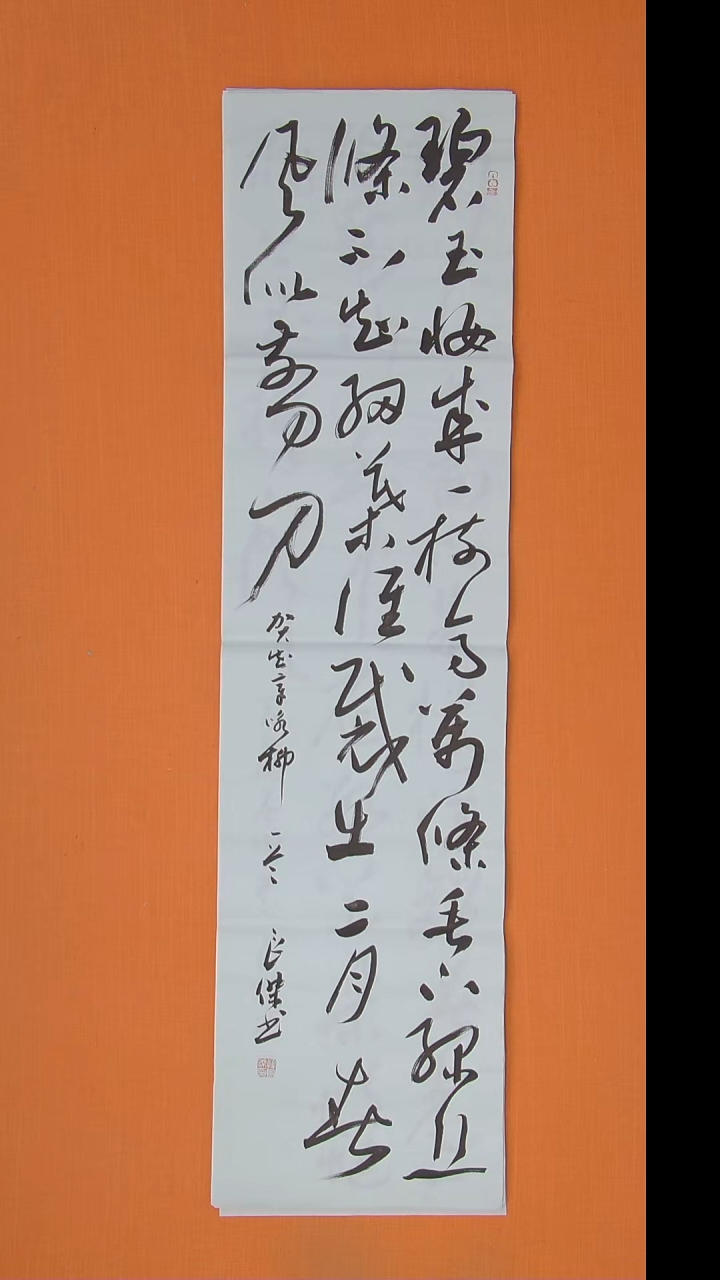 碧玉妝成一樹高萬條垂下綠丝
條不知細葉誰裁出二月春
風似剪刀
賀知章咏柳 良傑书